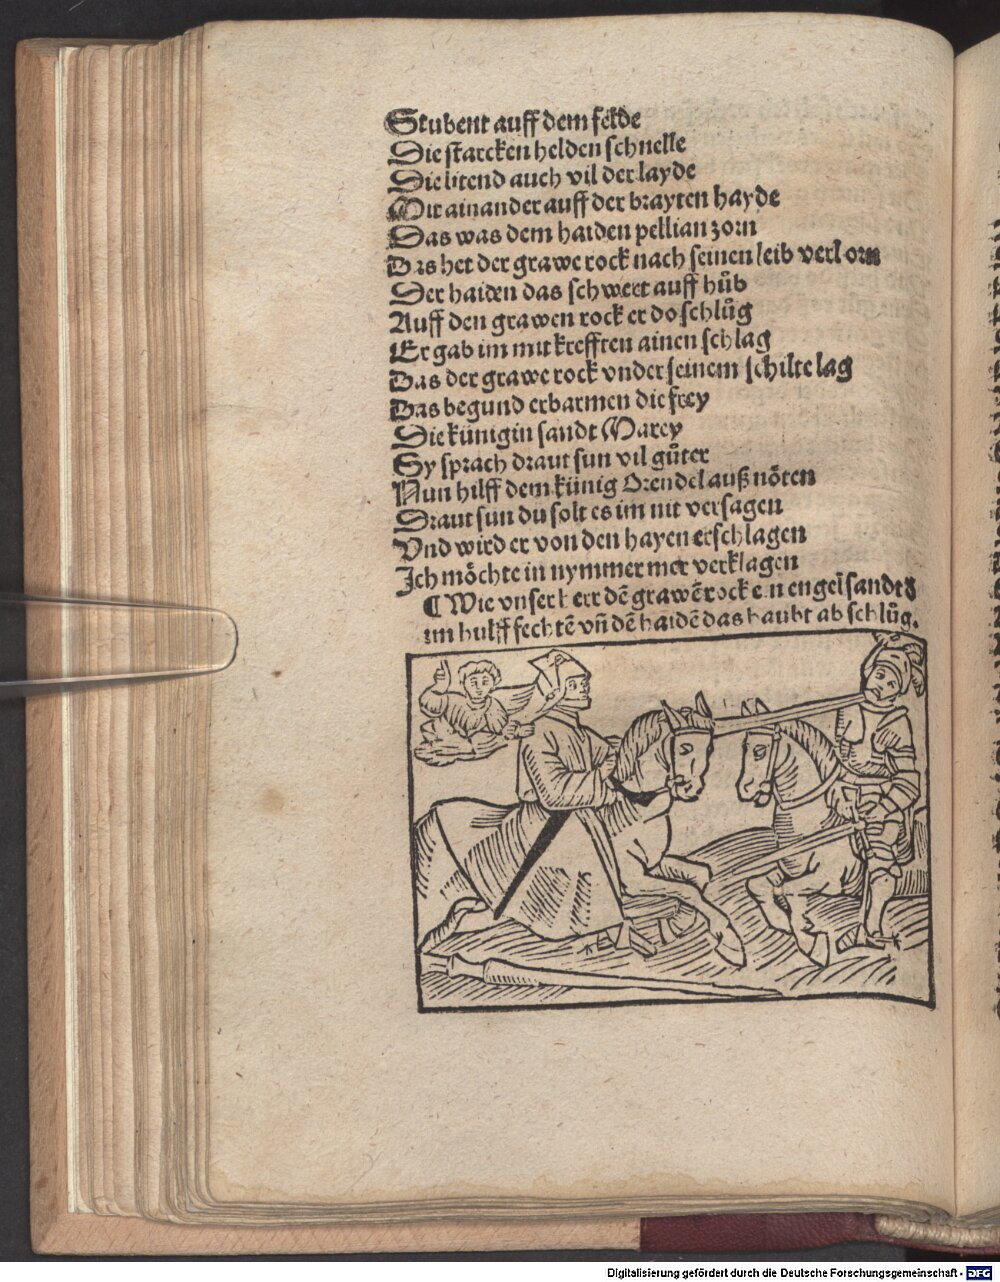 Stubent auff dem felde
Die starcken helden schnelle
Die litend auch vil der layde
Mit ainander auff der brayten hayde
Das was dem haiden pellian zorn
Das het der grawe rock nach seinen leib verlorn
Der haiden das schwert auff hůb
Auff den grawen rock er do schlůg
Er gab im mit krefften ainen schlag
Das der grawe rock vnder seinem schilte lag
Das begund erbarmen die frey
Die künigin sandt Marey
Sy sprach draut sun vil gůter
Nun hilff dem künig Orendel auß nöten
Draut sun du solt es im nit versagen
Vnd wird er von den hayen erschlagen
Ich möchte in nymmer mer verklagen
¶ Wie vnser herr dē grawē rock ein engel sandt
im hulff fechtē vñ dē haidē das haubt ab schlůg.
Digitalisierung gefördert durch die Deutsche Forschungsgemeinschaft - DFG